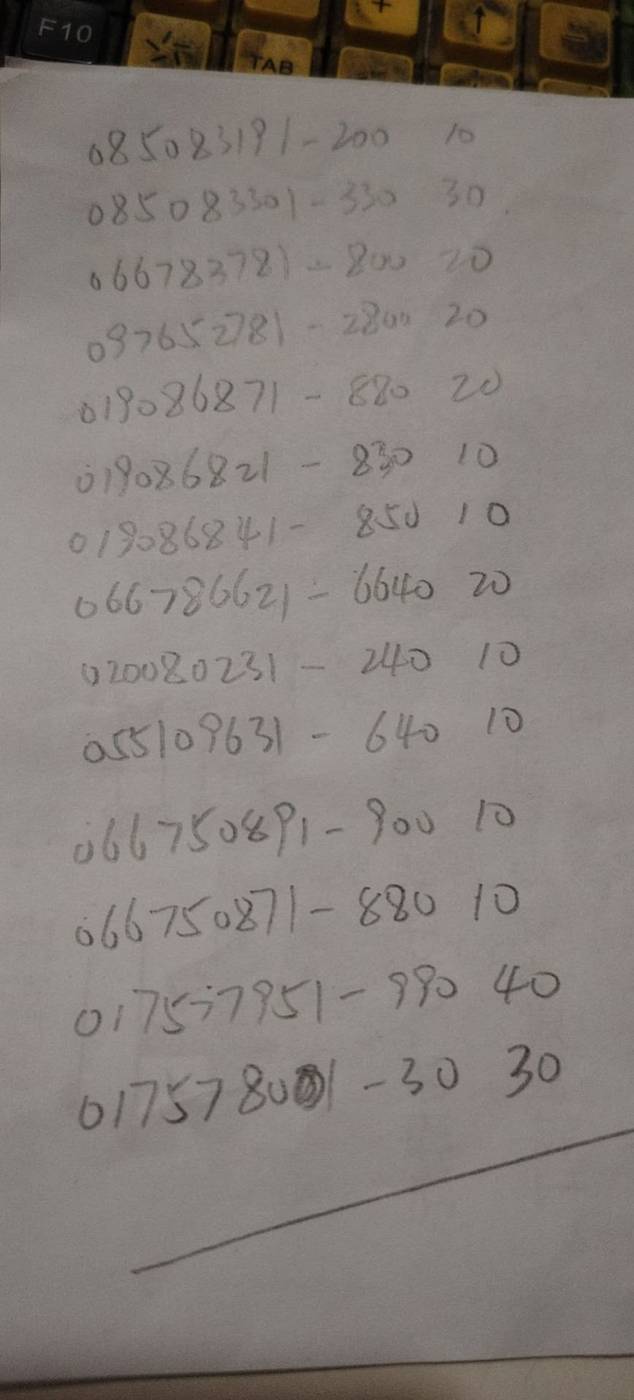 F10
TAB
085083191-200 10
085083301-330 30
066783781-800 20
097652781-2800 20
019086871-880 20
019086821-830 10
019086841-850 10
066786621-6640 20
020080231-240 10
055109631-640 10
066750891-900 10
066750871-880 10
017577951-990 40
017578001-30 30